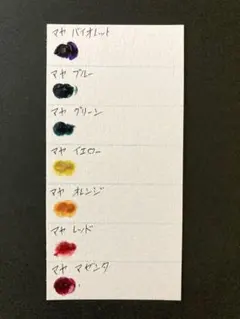 マヤ バイオレット
マヤ ブルー
マヤ グリーン
マヤ イエロー
マヤ オレンジ
マヤ レッド
マヤ マゼンタ